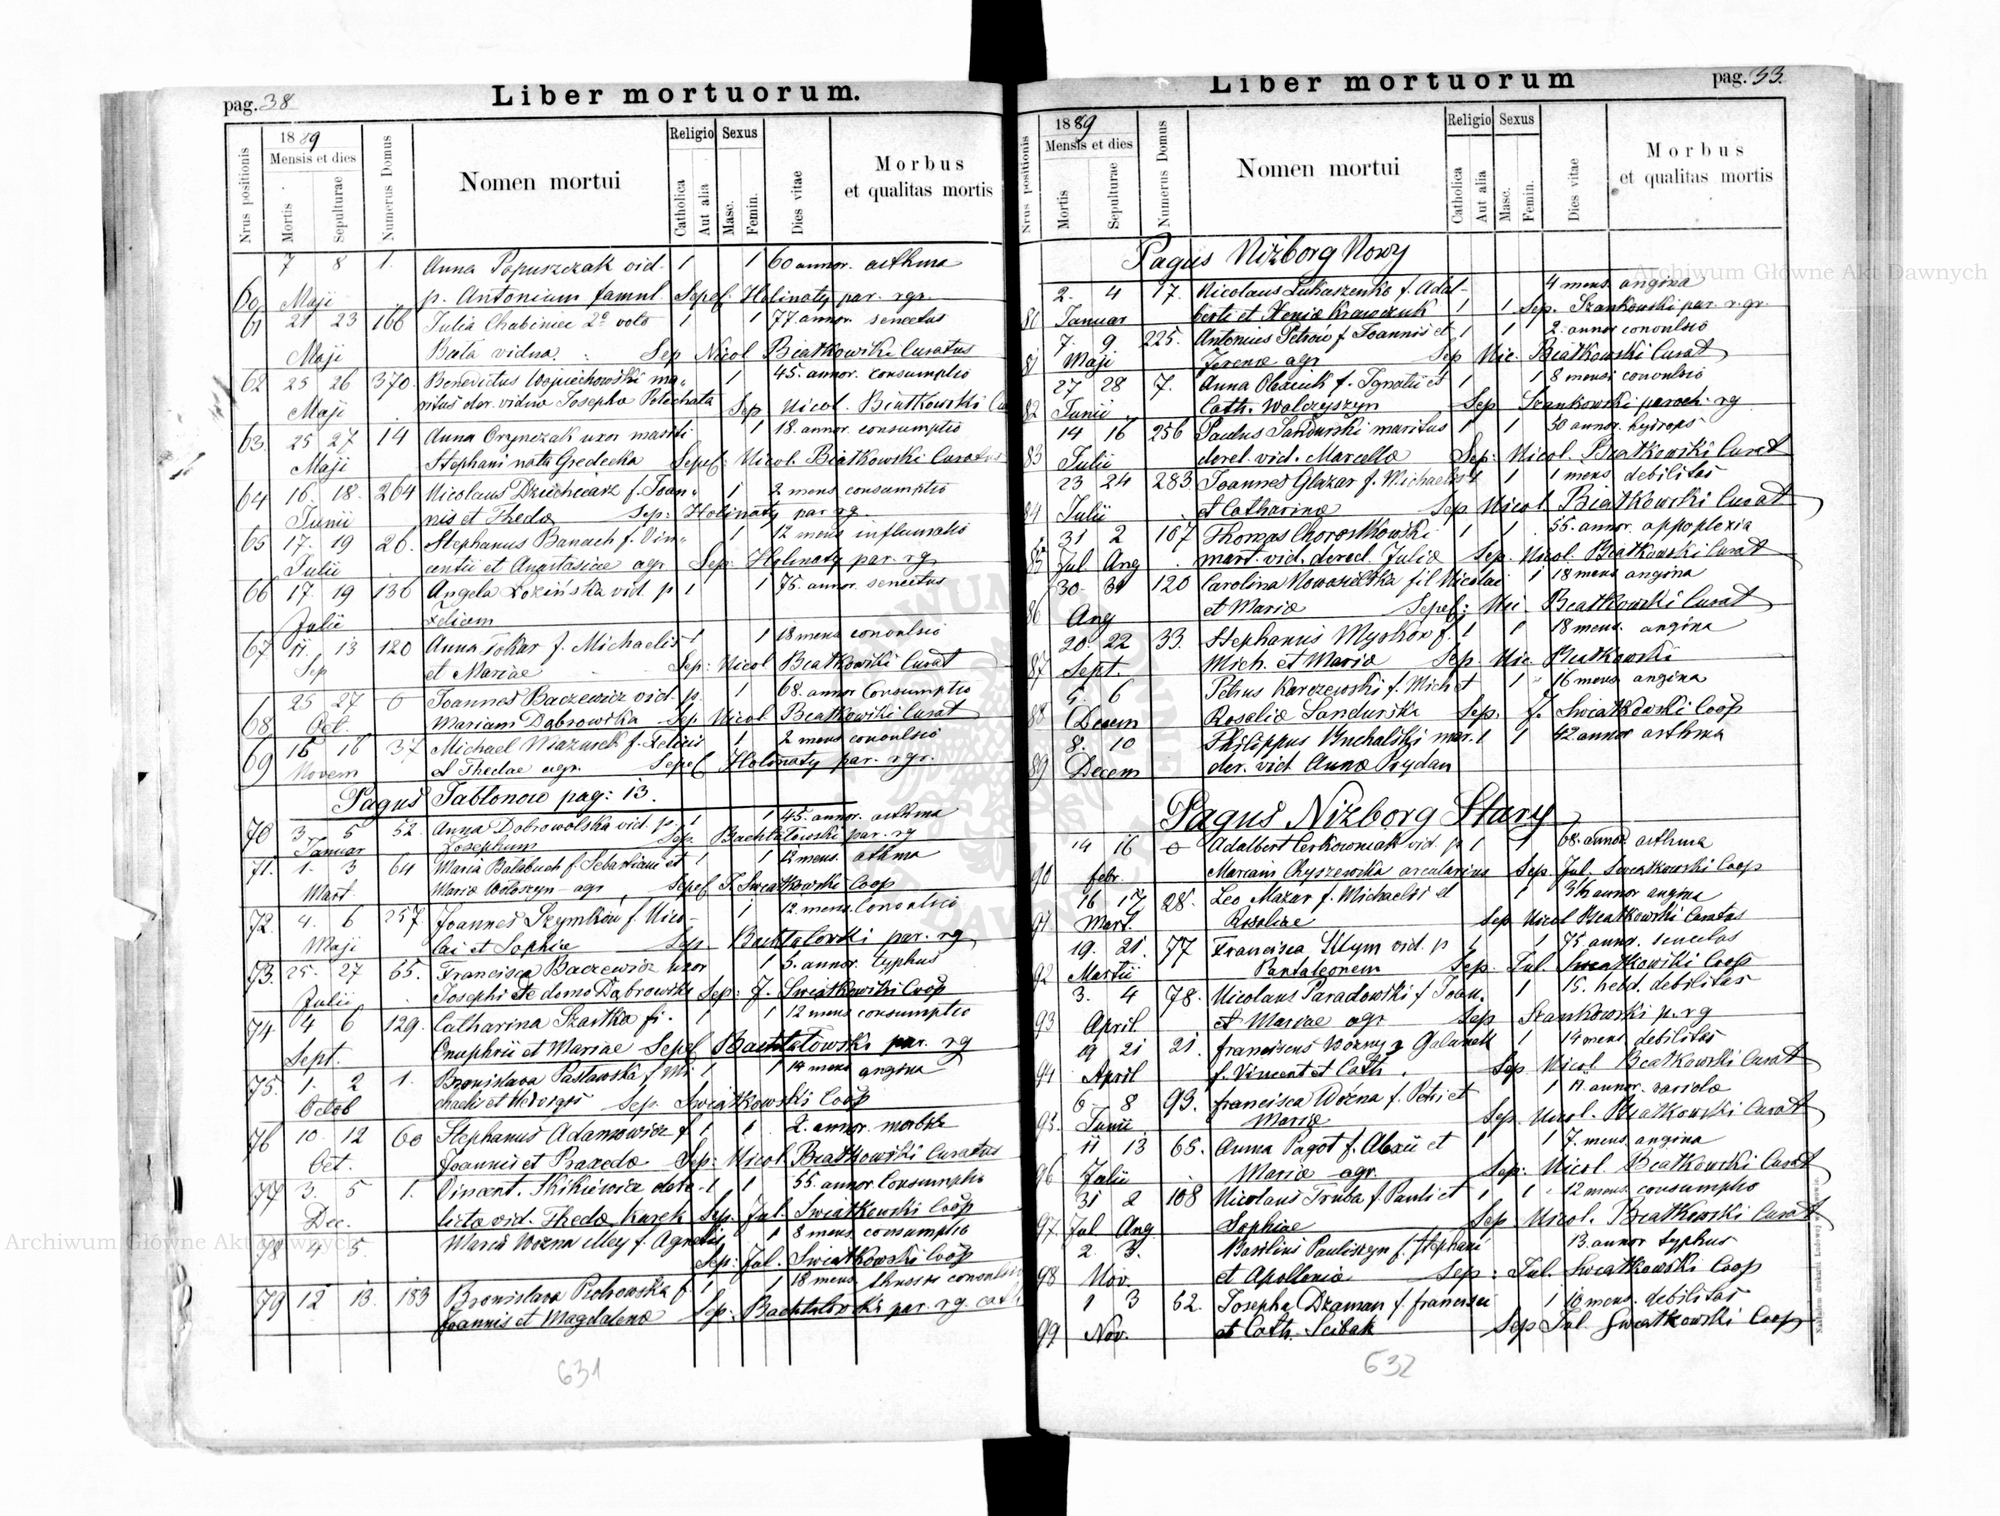 pag. 38
Liber mortuorum.
Nrus positionis
1889
Mensis et dies
Mortis
Sepulturae
Numerus Domus
Nomen mortui
Religio
Catholica
Aut alia
Sexus
Masc.
Femin.
Dies vitae
Morbus
et qualitas mortis
7 8 1. Anna Popuszczak vid. 1 1 60 annor. asthma
60 Maji p. Antonium famul. Sepel. Holinaty par. rgr.
61 21 23 166 Julia Chabiniec 2º voto 1 1 77 annor. senectus
Maji Bata vidua Sep Nicol Biatkowski Curatus
62 25 26 370. Benedictus Wojciechowski ma- 1 45. annor. consumptio
Maji ritus der. vidua Josepha Polochata Sep Nicol. Biatkowski Cu
63. 25 27 14 Anna Orynczak uxor 1 18. annor. consumptio
Maji Stephani nata Gredecka Sepel: Nicol. Biatkowski Curatus
64 16. 18. 264 Nicolaus f. Joan- 1 2 mens consumptio
Junii nis et Theda Sep: Holinaty par rg.
65 17. 19 26. Stephanus Banach f. Vin- 1 12 mens
Julii centii et Anastasiae agr Sep: Holinaty par. rg
66 17. 19 136 Angela Łozińska vid. p 1 1 75. annor. senectus
Julii Felicem
67 11. 13 120 Anna Tokar f. Michaelis 1 1 18 mens convulsio
Sep et Mariae Sep: Nicol Biatkowski Curat
25 27 0 Joannes Baczewicz vid. p. 1 68. annor Consumptio
68 Oct. Mariam Dąbrowska Sep. Nicol Biatkowski Curat
69 16 16 37 Michael Mazurek f. Felicis 1 2 mens convulsio
Novem et Thedae agr. Sepel Holinaty par. rgr.
Pagus Jablonow pag: 13.
70 3. 5 52. Anna Dobrowolska vid. p. 1 1 45. annor. asthma
Januar Josephum Sep. Bachtalowski par. rg
71. 1. 3 64 Maria Balabuch f. Sebastiani et 1 1 12 mens. asthma
Mart Maria Wołoszyn agr Sepel J. Swiatkowski Coop
72. 4. 6 257 Joannes Szymków f. Nico- 1 12. mens. Convulsio
Maji lai et Sophia Sep Bachtalovski par. rg
73. 25. 27 65. Francisca Baczewicz uxor 1 5. annor. typhus
Julii Josephi de domo Dąbrowska Sep: J. Swiatkowski Coop
74 4 6 129. Catharina Szastka fi. 1 1 12 mens consumptio
Sept. Onuphrii et Mariae Sepel Bachtalowski par. rg
75. 1. 2 1. Bronislava Pasławska f. Mi- 1 1 14 mens angina
Octob chaeli et Hedviges Sep. Swiatkowski Coop
76 10. 12 60 Stephanus Adamowicz f. 1 1 2. annor. morbili
Oct. Joannis et Praxeda Sep: Nicol Biatkowski Curatus
77 3. 5 1. Vincent. Skikiewicz dere- 1 1 55. annor Consumptio
Dec. licta vid. Theda Kurek Sep. Jul. Swiatkowski Coop
78 4 5. Maria Wozna f. Agnetis 1 8 mens consumptio
Sep: Jul. Swiatkowski Coop
79 12 13. 183 Bronislava Piotrowska f. 1 1 18 mens convulsio
Joannis et Magdalena Sep: Bachtalovski par. rg. cath
631
Liber mortuorum
pag. 33.
Nrus positionis
1889
Mensis et dies
Mortis
Sepulturae
Numerus Domus
Nomen mortui
Religio
Catholica
Aut alia
Sexus
Masc.
Femin.
Dies vitae
Morbus
et qualitas mortis
Pagus Niżborg Nowy
2. 4 17. Nicolaus Łukaszenko f. Adal- 4 mens. angina
81 Januar berti et Xenia Krawczuk 1 1 Sep. Szankowski par. r. gr.
7. 9 225. Antonius Petrów f. Joannis et 1 1 2. annor convulsio
81 Maji agr Sep Nic. Biatkowski Curat
27 28 7. Anna f. Ignatii et 1 1 8 mens convulsio
82 Junii Cath. Wolczyszyn Sep Szankowski paroch. rg
14 16 256 Paulus Sandurski maritus 1 1 50 annor. hydrops
83 Julii derel. vid. Marcella Sep: Nicol. Biatkowski Curat
23 24 283 Joannes Glazar f. Michaelis 1 1 1 mens debilitas
84 Julii et Catharina Sep Nicol Biatkowski Curat
31 2 107 Thomas Chorostkowski 1 1 55. annor. appoplexia
85 Jul Aug mart. vid. derel. Julia Sep. Nicol. Biatkowski Curat
30. 31 120 Carolina Nowosielska fil Nicolai 1 18 mens angina
86 Aug et Maria Sepel: Nic Biatkowski Curat
20. 22 33. Stephanus Myskow f. 1 1 18 mens. angina
87 Sept. Mich. et Maria Sep. Nic. Biatkowski
5. 6 Petrus Karczewski f. Mich et 1 16 mens angina
88 Decem Rosalia Sandurska Sep. J. Swiatkowski Coop
8. 10 Philippus Buchalski mar. 1 1 42 annor asthma
89 Decem der. vid. Anna Prydan
Pagus Niżborg Stary
14 16 0 Adalbert Cerkowniak vid. p 1 1 68. annor asthma
90 febr. Mariam Chyszewska arcularius Sep Jul. Swiatkowski Coop
16 17 28. Leo Mazar f. Michaelis et 1 3½ annor angina
91 Mart. Rosaliae Sep Nicol Biatkowski Curatus
19. 21. 77 Francisca Sllym vid. p 1 1 75 annor. senectus
92 Martii Pantaleonem Sep. Jul. Swiatkowski Coop
3. 4 78. Nicolaus Paradowski f. Joan. 1 15. hebd. debilitas
93 April et Mariae agr Sep Szankowski p. rg
19 21 21. franciscus Wozny 1 14 mens debilitas
94 April f. Vincent et Cath. Sep Nicol Biatkowski Curat
6. 8 93. francisca Woźna f. Petri et 1 11. annor. variola
95. Junii Maria Sep. Nicol. Biatkowski Curat
11 13 65. Anna Pagot f. Alexii et 1 1 7. mens angina
96 Julii Maria agr. Sep: Nicol Biatkowski Curat
31 2 108 Nicolaus Truba f. Pauli et 1 1 12 mens. consumptio
97 Jul Aug Sophiae Sep Nicol. Biatkowski Curat
2 3. Basilius Pauliszyn f. Stephani 13. annor typhus
98 Nov. et Apollonia Sep: Jul. Swiatkowski Coop
1 3 62. Josepha Dzaman f. francisci 1 10 mens. debilitas
99 Nov. et Cath. Scibak Sep Jul. Swiatkowski Coop
632
Archiwum Główne Akt Dawnych
Archiwum Główne Akt Dawnych